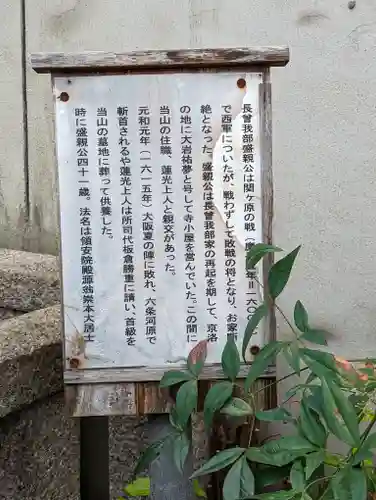 長曾我部盛親公は関ヶ原の戦(
年=一六
で西軍についたが、戦わずして敗戦の将となり、お家
絶となった。盛親公は長曾我部家の再起を期して、京洛
の地に大岩祐夢と号して寺小屋を営んでいた。この間に
当山の住職、蓮光上人と親交があった。
元和元年(一六一五年)大阪夏の陣に敗れ、六条河原で
斬首されるや蓮光上人は所司代板倉勝重に請い、首級を
当山の墓地に葬って供養した。
時に盛親公四十一歳。法名は領安院殿源翁崇本大居士